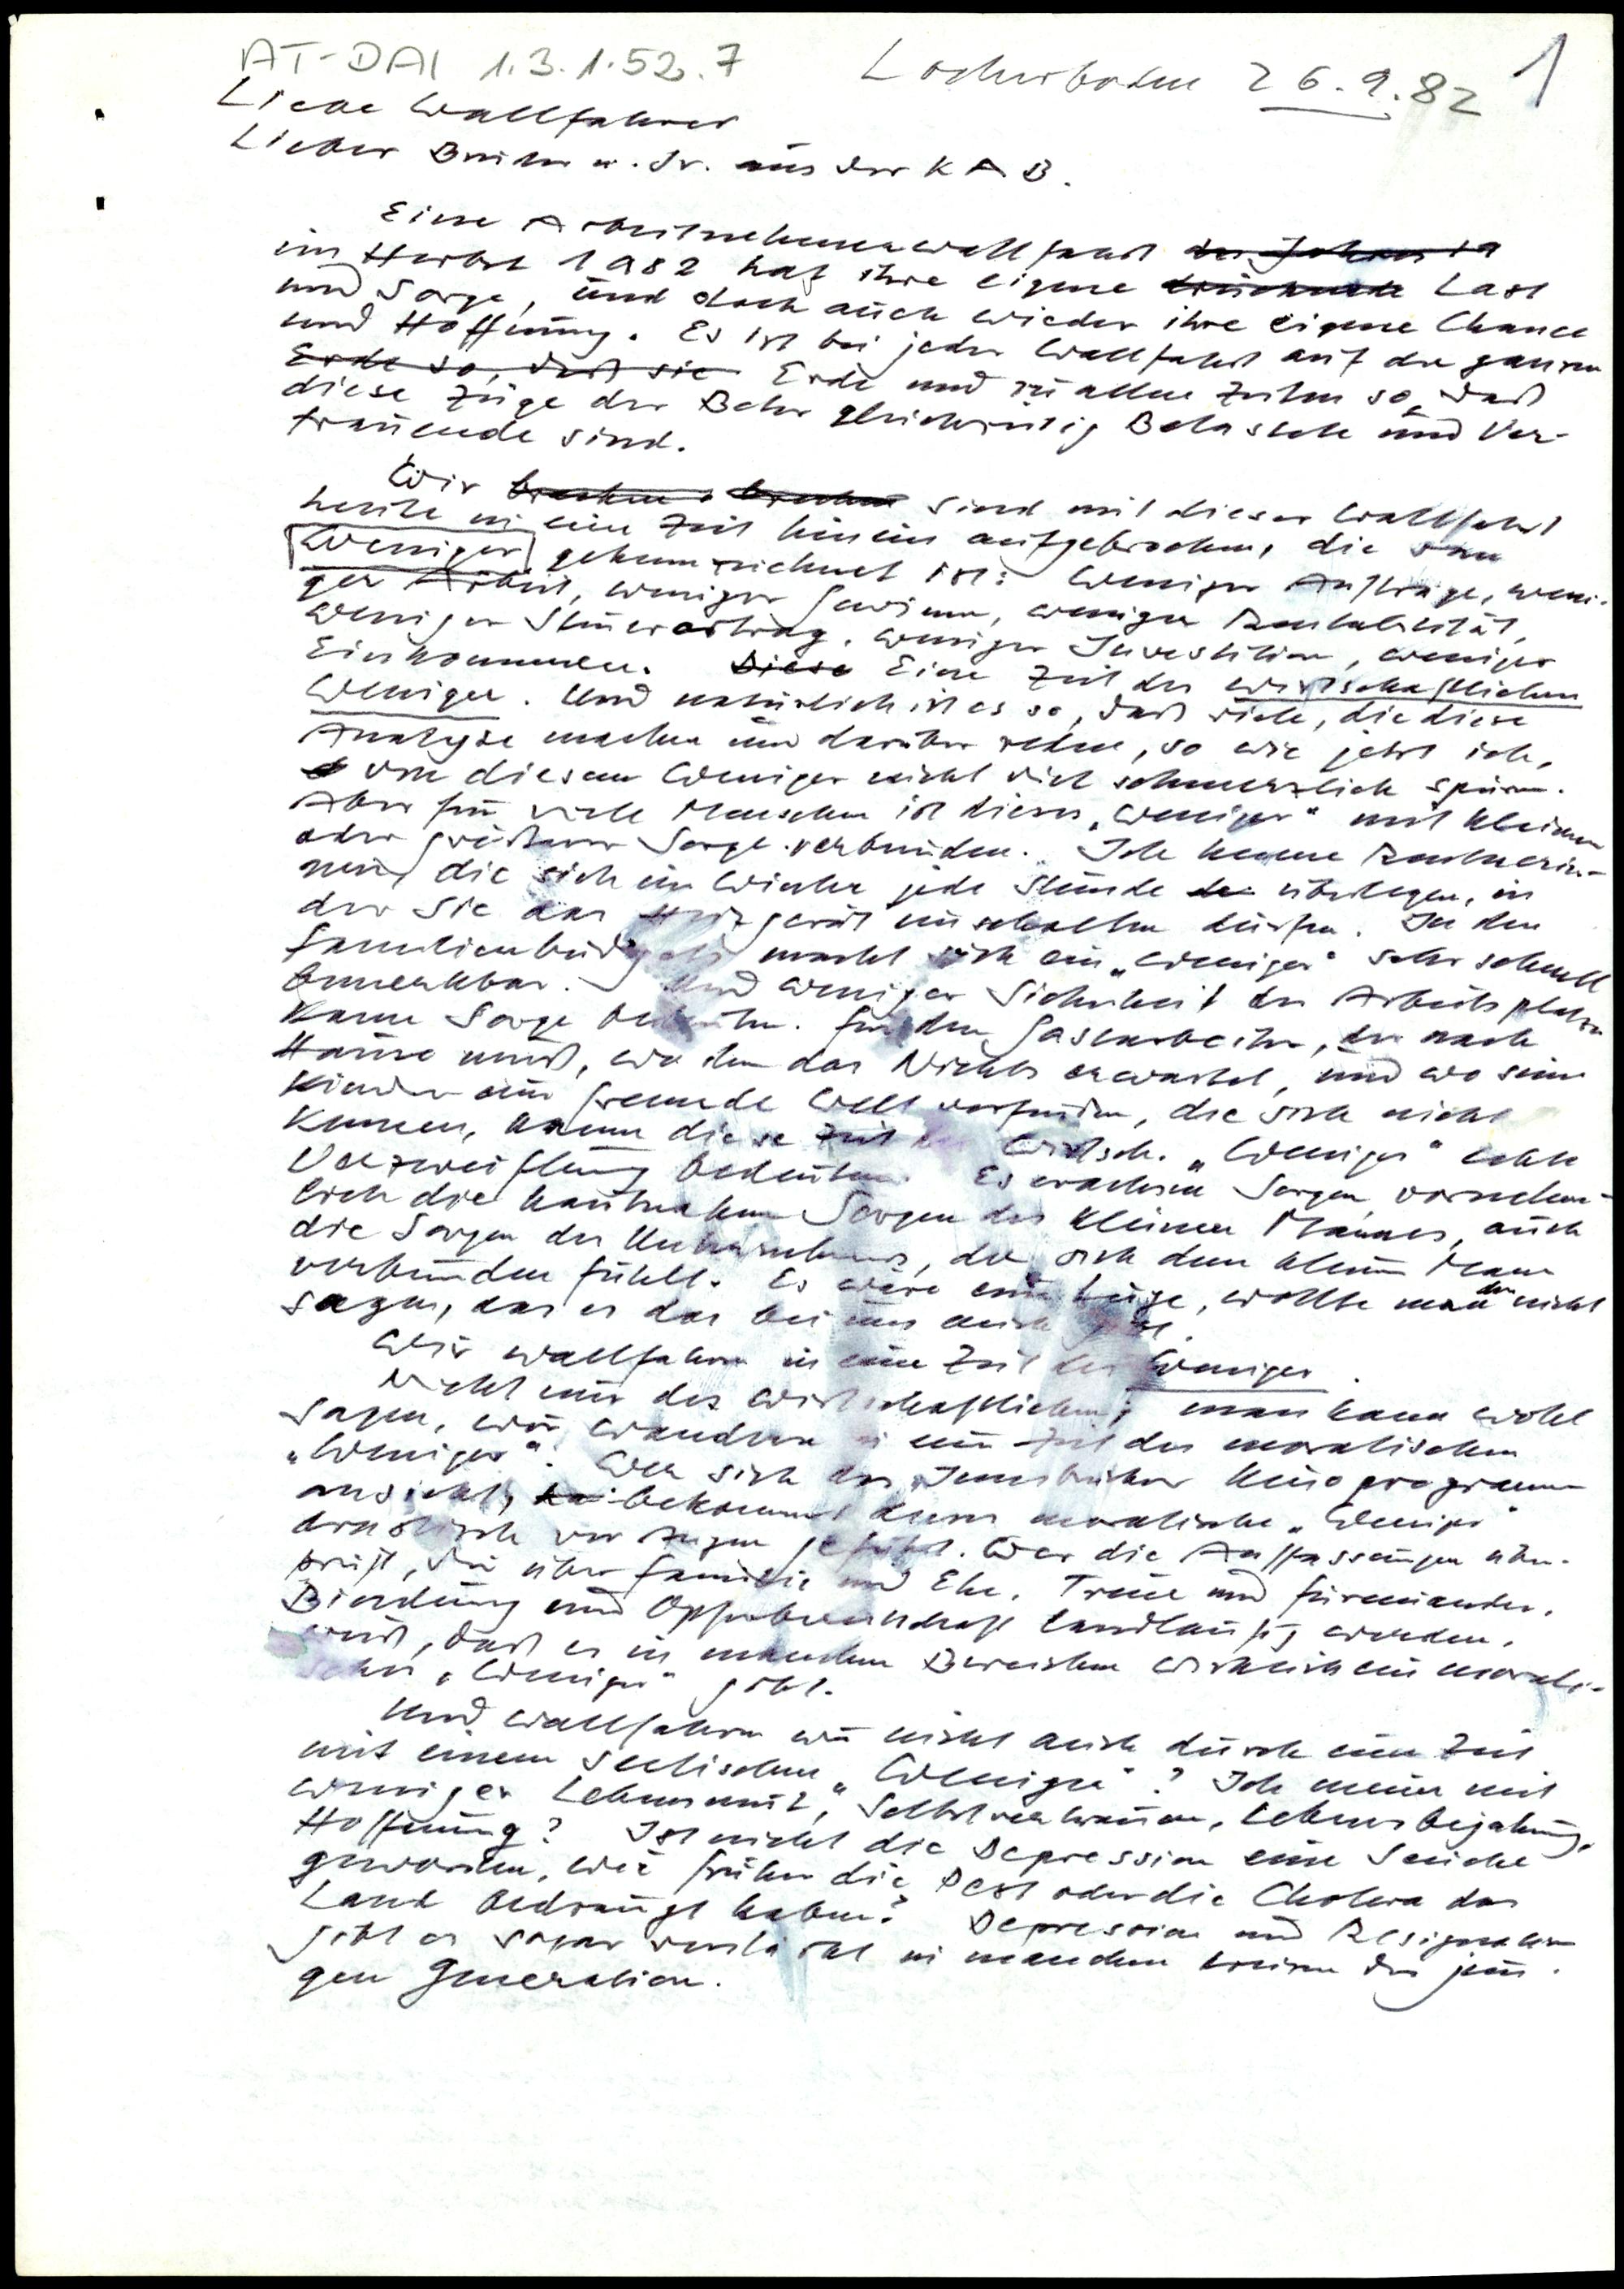 AT-DAI 1.3.1.52.7 Locherboden 26.9.82 1
Liebe Wallfahrer
Lieber Brüder u. Sr. aus der KAB.
Eine Arbeitnehmerwallfahrt der Jahres 19
im Herbst 1982 hat ihre eigene drückende Last
und Sorge, und doch auch wieder ihre eigene Chance
und Hoffnung. Es ist bei jeder Wallfahrt auf der ganzen
Erde so, daß sie Erde und zu allen Zeiten so, daß
diese Züge der Beter gleichzeitig Belastete und Ver-
trauende sind.
Wir brechen brechen sind mit dieser Wallfahrt
heute in eine Zeit hinein aufgebrochen, die vom
Weniger gekennzeichnet ist: Weniger Aufträge, weni-
ger Arbeit, weniger Gewinn, weniger Rentabilität,
weniger Steuerertrag, weniger Investition, weniger
Einkommen. Diese Eine Zeit des wirtschaftlichen
Weniger. Und natürlich ist es so, daß viele, die diese
Analyse machen und darüber reden, so wie jetzt ich,
von diesem Weniger nicht viel schmerzlich spüren.
Aber für viele Menschen ist dieses „Weniger" mit kleinerer
oder größerer Sorge verbunden. Ich kenne Rentnerin-
nen, die sich im Winter jede Stunde überlegen, in
der sie das Heizgerät einschalten dürfen. In den
Familienbudgets macht sich ein „Weniger" sehr schnell
bemerkbar. Und weniger Sicherheit der Arbeitsplätze
kann Sorge bedeuten. Für den Gastarbeiter, der nach
Hause muß, wo ihn das Nichts erwartet, und wo seine
Kinder eine fremde Welt vorfinden, die sie nicht
kennen, kann diese Zeit des Wirtsch. „Weniger" echte
Verzweiflung bedeuten. Es wachsen Sorgen, vornehm-
lich die hautnahen Sorgen des kleinen Mannes, auch
die Sorgen des Unternehmers, der sich dem kleinen Mann
verbunden fühlt. Es wäre eine Lüge, wollte man nicht
sagen, das es das bei uns nicht gibt.
Wir wallfahren in eine Zeit des Weniger.
Nicht nur des Wirtschaftlichen, man kann wohl
sagen, wir wandern in eine Zeit des moralischen
„Weniger". Wer sich das Innsbrucker Kinoprogramm
ansieht, bekommt dieses moralische „Weniger"
drastisch vor Augen geführt. Wer die Auffassungen über-
prüft, die über Familie und Ehe, Treue und füreinander,
Bindung und Opferbereitschaft landläufig werden,
weiß, daß es in manchen Bereichen wirklich ein morali-
sches „Weniger" gibt.
Und wallfahren wir nicht auch durch eine Zeit
mit einem seelischen „Weniger"? Ich meine mit
weniger Lebensmut, Selbstvertrauen, Lebensbejahung,
Hoffnung? Ist nicht die Depression eine Seuche
geworden, wie früher die Pest oder die Cholera das
Land bedrängt haben? Depression und Resignation
gibt es sogar verstärkt in manchen Kreisen der jun-
gen Generation.